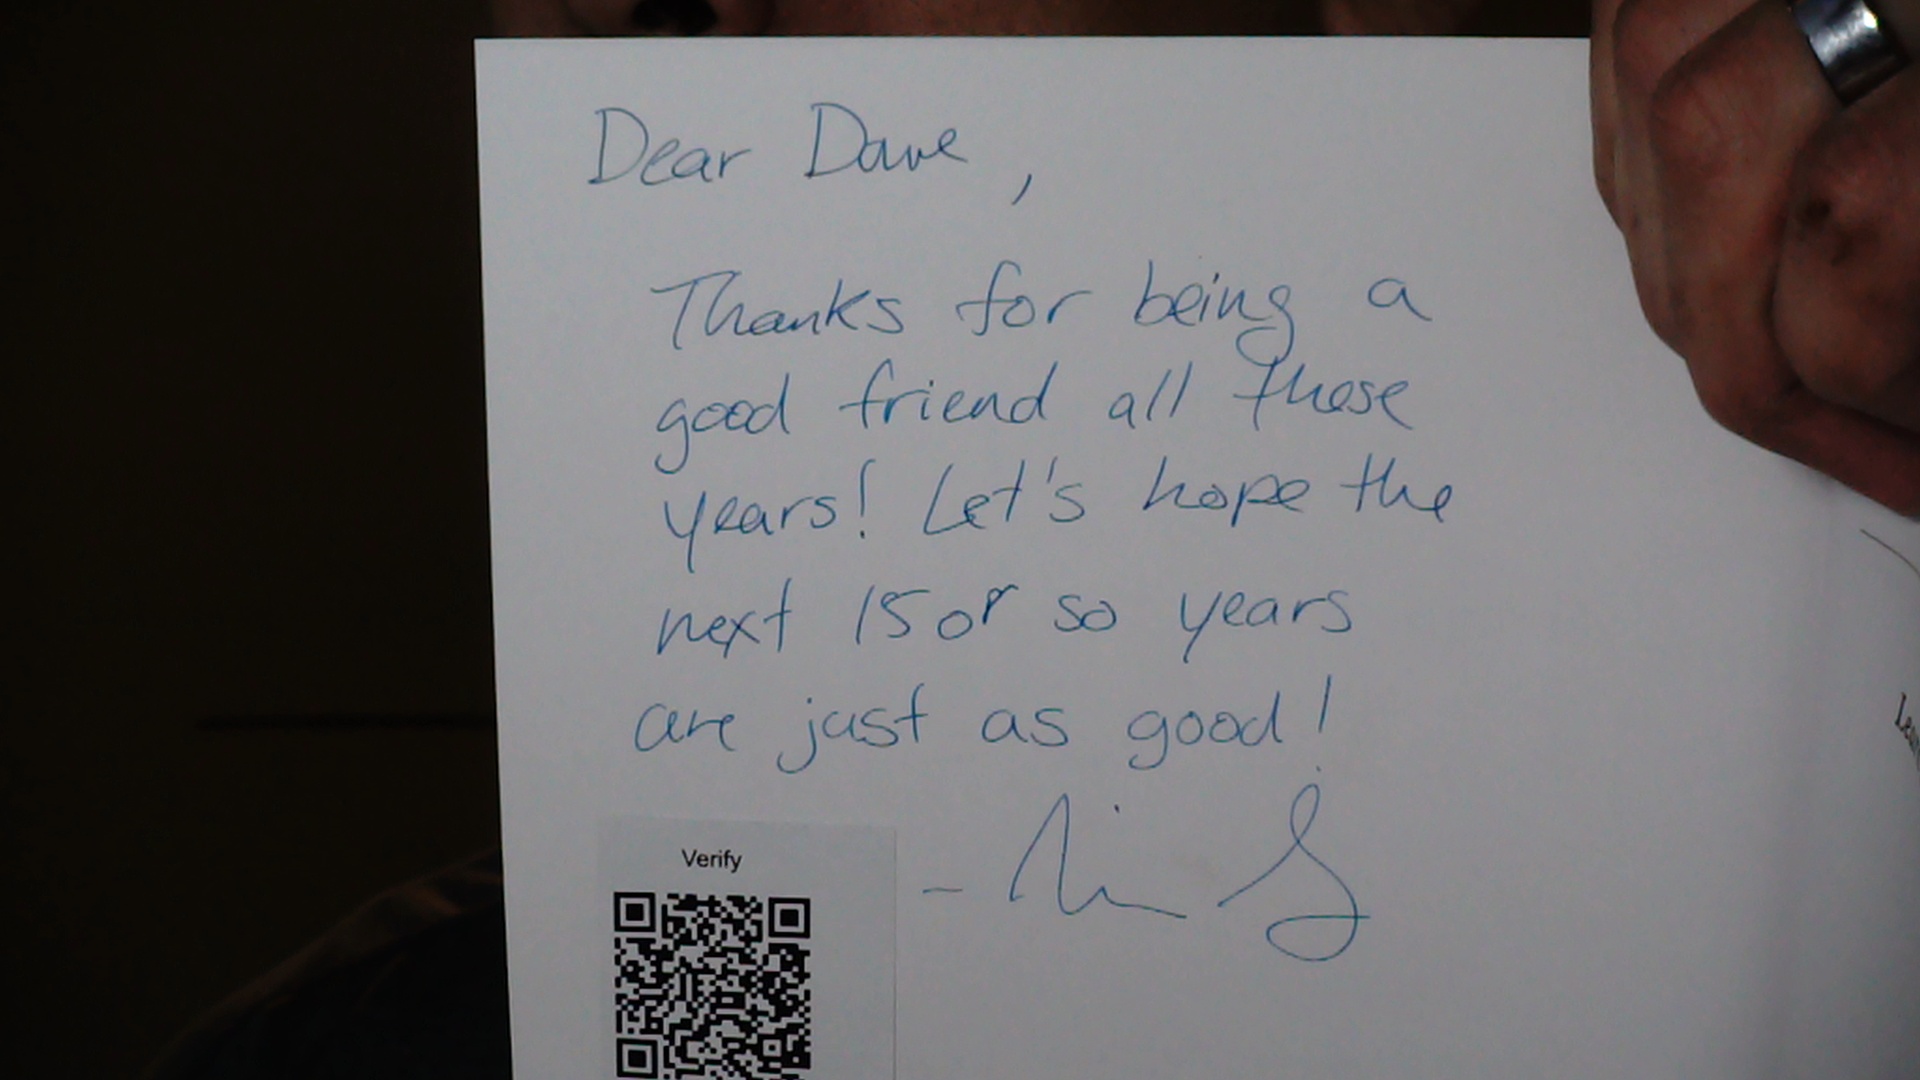 Dear Dave,
Thanks for being a
good friend all these
years! Let's hope the
next 15 or so years
are just as good!
Verify